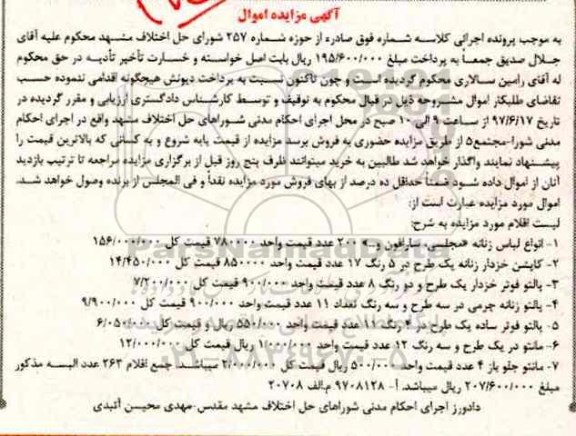 آگهی مزایده اموال
به موجب پرونده اجرائی کلاسه شماره فوق صادره از حوزه شماره ۲۵۷ شورای حل اختلاف مشهد محکوم علیه آقای
جلال صدیق جمعا به پرداخت مبلغ ۱۹۵/۶۰۰/۰۰۰ ریال بابت اصل خواسته و خسارت تأخیر تأدیه در حق محکوم
له آقای رامین سالاری محکوم گردیده است و چون تاکنون نسبت به پرداخت دیونش هیچگونه اقدامی ننموده حسب
تقاضای طلبکار اموال مشروحه ذیل در قبال محکوم به توقیف و توسط کارشناس دادگستری ارزیابی و مقرر گردیده در
تاریخ ۹۷/۶/۱۷ از ساعت ۹ الی ۱۰ صبح در محل اجرای احکام مدنی شوراهای حل اختلاف مشهد واقع در اجرای احکام
مدنی شورا-مجتمع۵ از طریق مزایده حضوری به فروش برسد مزایده از قیمت پایه شروع و به کسانی که بالاترین قیمت را
پیشنهاد نمایند واگذار خواهد شد طالبین به خرید میتوانند ظرف پنج روز قبل از برگزاری مزایده مراجعه تا ترتیب بازدید
آنان از اموال داده شود ضمناً حداقل ده درصد از بهای فروش مورد مزایده نقداً و فی المجلس از برنده وصول خواهد شد.
اموال مورد مزایده عبارت است از:
لیست اقلام مورد مزایده به شرح:
۱- انواع لباس زنانه «مجلسی، سارافون و... ۲۰۰ عدد قیمت واحد ۷۸۰۰۰۰ قیمت کل ۱۵۶/۰۰۰/۰۰۰
۲- کاپشن خزدار زنانه یک طرح در ۵ رنگ ۱۷ عدد قیمت واحد ۸۵۰۰۰۰ قیمت کل ۱۴/۴۵۰/۰۰۰
۳- پالتو فوتر خزدار یک طرح و دو رنگ ۸ عدد قیمت واحد ۹۰۰/۰۰۰ قیمت کل ۷/۲۰۰/۰۰۰
۴- پالتو زنانه چرمی در سه طرح و سه رنگ تعداد ۱۱ عدد قیمت واحد ۹۰۰/۰۰۰ قیمت کل ۹/۹۰۰/۰۰۰
۵- پالتو فوتر ساده یک طرح در ۴ رنگ ۱۱ عدد قیمت واحد ۵۵۰/۰۰۰ ریال و قیمت کل ۶/۰۵۰/۰۰۰
۶- مانتو در یک طرح و سه رنگ ۱۲ عدد قیمت واحد ۱/۰۰۰/۰۰۰ ریال قیمت کل ۱۲/۰۰۰/۰۰۰
۷- مانتو جلو باز ۴ عدد قیمت واحد ۵۰۰/۰۰۰ ریال قیمت کل ۲/۰۰۰/۰۰۰ میباشد. جمع اقلام ۲۶۳ عدد البسه مذکور
مبلغ ۲۰۷/۶۰۰/۰۰۰ ریال میباشد. آ- ۹۷۰۸۱۲۸ م.الف ۲۰۷۰۸
دادورز اجرای احکام مدنی شوراهای حل اختلاف مشهد مقدس-مهدی محیسن آتبدی
ParsNamadData
۰۲۱-۸۸۳۴۹۶۷۰-۵